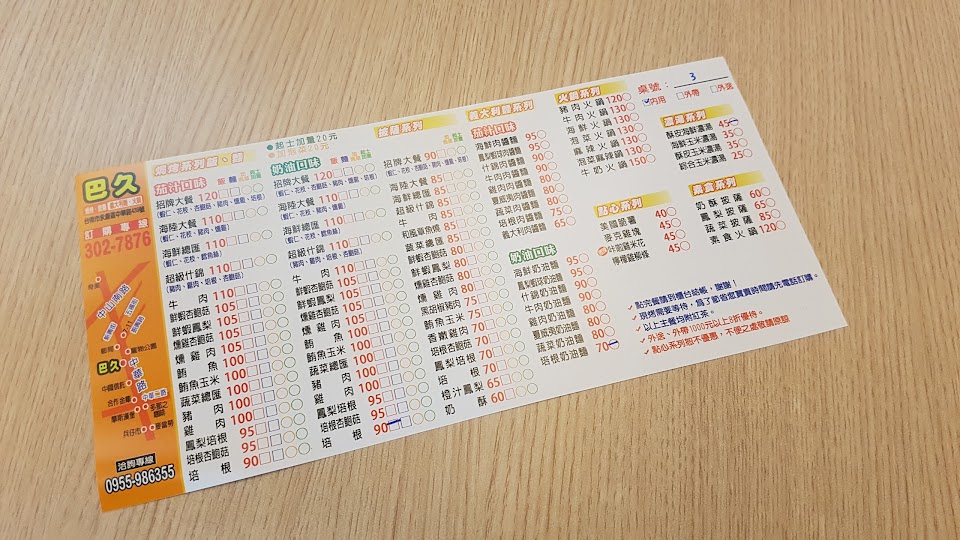 巴久
台南市永康區中華路459號
訂購專線
302-7876
中山南路
郵局
寵物公園
巴久
中華路
中國信託
合作金庫
摩斯漢堡
兵仔市
麥當勞
洽詢專線
0955-986355
焗烤系列飯、麵
●起士加量20元
●加泡菜20元
茄汁口味 飯 麵
招牌大餐 120
(蝦仁、花枝、杏鮑菇、豬肉、燻雞、培根)
海陸大餐 110
(蝦仁、花枝、豬肉、燻雞)
海鮮總匯 110
(蝦仁、花枝、鱈魚絲)
超級什錦 110
(豬肉、雞肉、培根、杏鮑菇)
牛肉 110
鮮蝦杏鮑菇 105
鮮蝦鳳梨 105
燻雞杏鮑菇 105
燻雞肉 100
鮪魚 100
鮪魚玉米 100
蔬菜總匯 100
豬肉 100
雞肉 100
鳳梨培根 95
培根杏鮑菇 95
培根 90
奶油口味 飯 麵
招牌大餐 120
(蝦仁、花枝、杏鮑菇、豬肉、燻雞、培根)
海陸大餐 110
(蝦仁、花枝、豬肉、燻雞)
海鮮總匯 110
(蝦仁、花枝、鱈魚絲)
超級什錦 110
(豬肉、雞肉、培根、杏鮑菇)
牛肉 110
鮮蝦杏鮑菇 105
鮮蝦鳳梨 105
燻雞杏鮑菇 105
燻雞肉 100
鮪魚 100
鮪魚玉米 100
蔬菜總匯 100
豬肉 100
雞肉 100
鳳梨培根 95
培根杏鮑菇 95
培根 90
披薩系列
招牌大餐 90
(蝦仁、花枝、杏鮑菇、豬肉、燻雞、培根)
海陸大餐 85
海鮮總匯 85
超級什錦 85
牛肉 85
和風章魚燒 85
蔬菜總匯 80
鮮蝦杏鮑菇 80
鮮蝦鳳梨 80
燻雞杏鮑菇 80
燻雞肉 80
黑胡椒豬肉 75
鮪魚玉米 75
香嫩雞肉 70
培根杏鮑菇 70
鳳梨培根 70
培根 70
橙汁鳳梨 65
奶酥 60
義大利麵系列
茄汁口味
海鮮肉醬麵 95
鳳梨蝦球肉醬麵 95
什錦肉醬麵 90
牛肉肉醬麵 90
雞肉肉醬麵 80
夏威夷肉醬麵 80
蔬菜肉醬麵 80
培根肉醬麵 70
義大利肉醬麵 65
奶油口味
海鮮奶油麵 95
鳳梨蝦球奶油麵 95
什錦奶油麵 90
牛肉奶油麵 90
雞肉奶油麵 80
夏威夷奶油麵 80
蔬菜奶油麵 80
培根奶油麵 70
火鍋系列
豬肉火鍋 120
牛肉火鍋 130
海鮮火鍋 130
泡菜火鍋 130
麻辣火鍋 130
泡菜麻辣鍋 150
牛奶火鍋 150
點心系列
美國脆薯 40
麥克雞塊 45
卡啦雞米花 45
檸檬雞柳條 45
桌號：3
內用 外帶 外送
濃湯系列
酥皮海鮮濃湯 45
海鮮玉米濃湯 35
酥皮玉米濃湯 35
綜合玉米濃湯 25
素食系列
奶酥披薩 60
鳳梨披薩 65
蔬菜披薩 85
素食火鍋 120
點完餐請到櫃台結帳，謝謝！
現烤需要等待，為了節省您寶貴時間請先電話訂購。
以上主餐均附紅茶。
外送、外帶1000元以上8折優待。
點心系列恕不優惠，不便之處敬請原諒